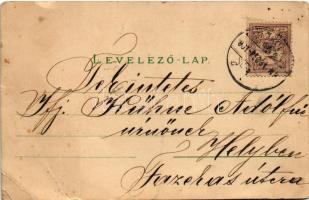 LEVELEZŐ-LAP.
Tekintetes
Ifj. Kühne Adolf
úrnőnek
Helyben
Fazekas utcza